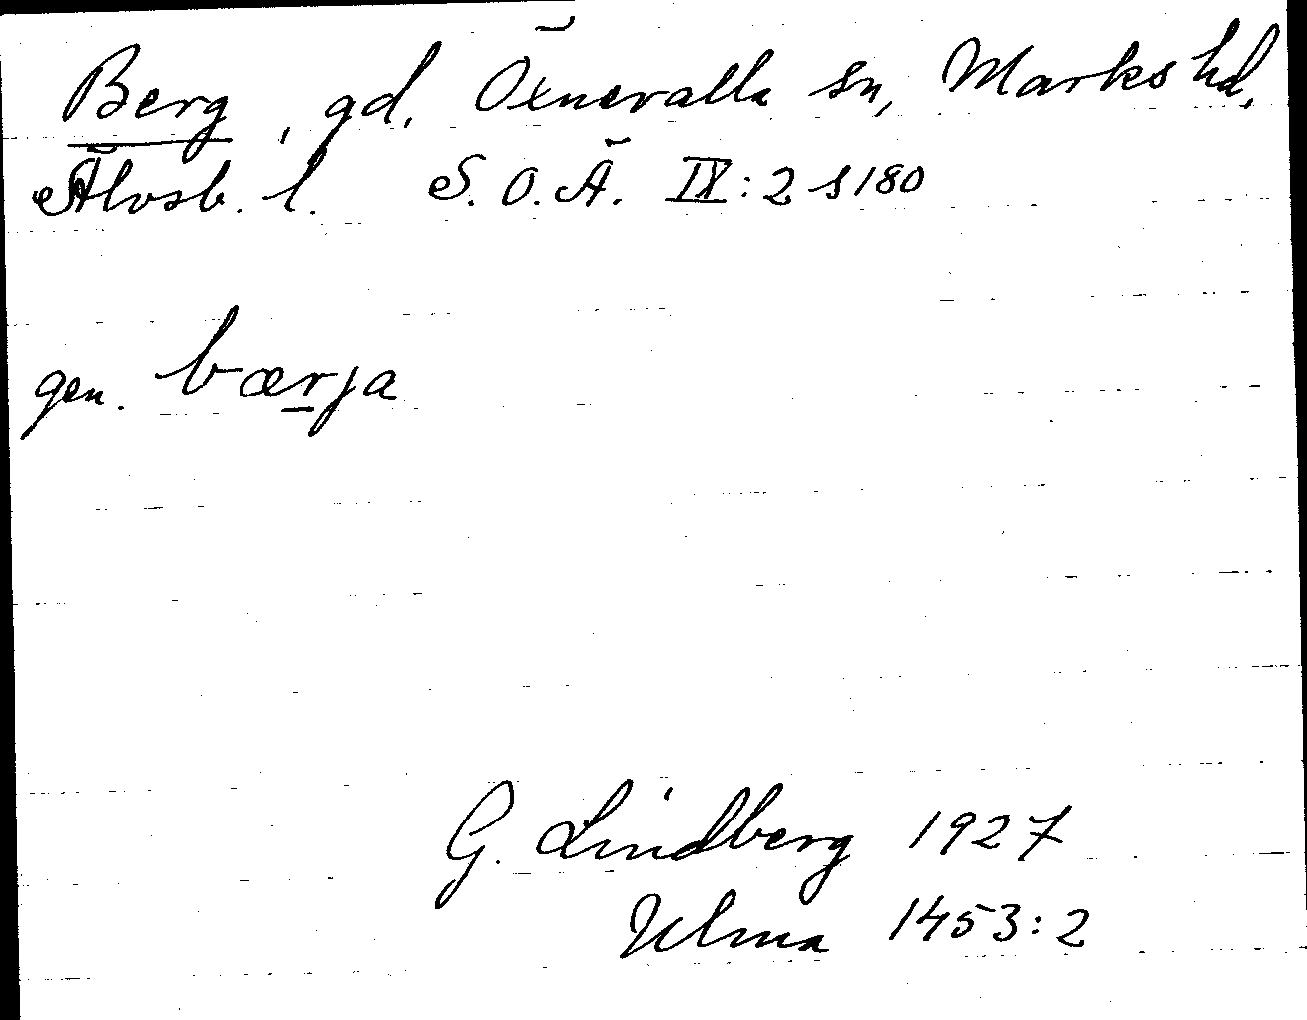 Berg, gd, Öxnevalla sn, Marks hd,
Älvsb. l. S. O. Ä. IX: 2 s 180
gen. bærja
G. Lindberg 1927
Ulma 1453:2